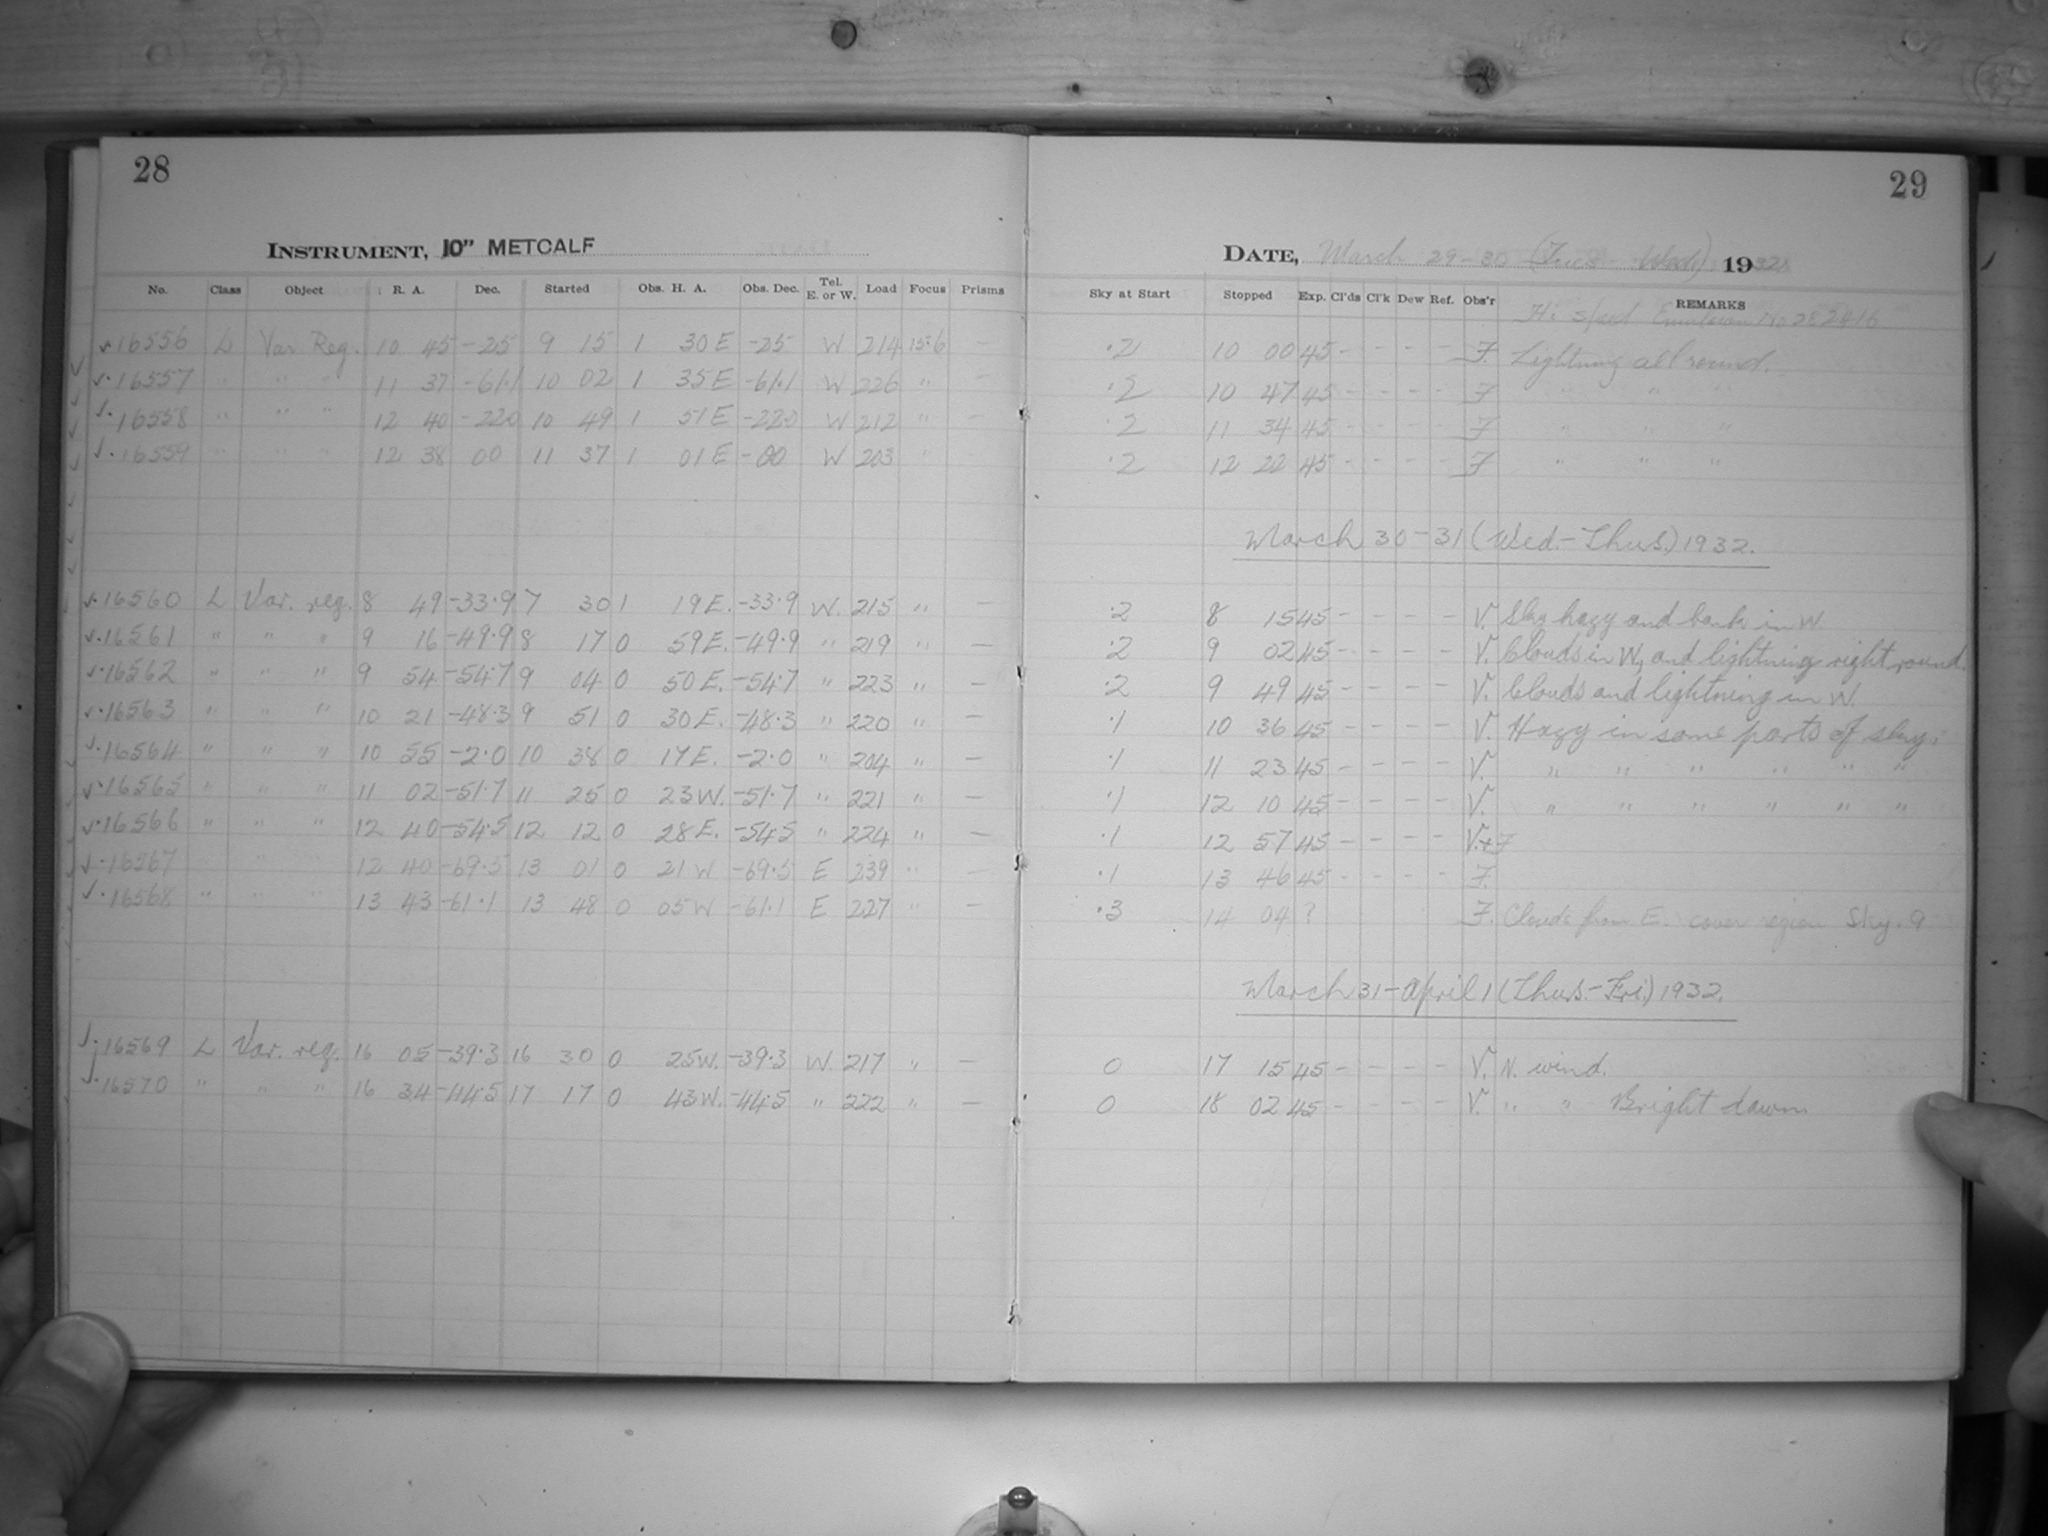 28
INSTRUMENT, 10" METCALF
No. Class Object R. A. Dec. Started Obs. H. A. Obs. Dec. Tel. E. or W. Load Focus Prisms
16556 L Var Reg. 10 45 -25 9 15 1 30 E -25 W 214 15.6 -
16557 " " " 11 37 -61.1 10 02 1 35 E -61.1 W 226 " -
16558 " " " 12 40 -22.0 10 49 1 51 E -22.0 W 212 " -
16559 " " " 12 38 00 11 37 1 01 E -00 W 203 "
16560 L Var. reg. 8 49 -33.9 7 30 1 19 E. -33.9 W. 215 " -
16561 " " " 9 16 -49.9 8 17 0 59 E. -49.9 " 219 " -
16562 " " " 9 54 -54.7 9 04 0 50 E. -54.7 " 223 " -
16563 " " " 10 21 -48.3 9 51 0 30 E. -48.3 " 220 " -
16564 " " " 10 55 -2.0 10 38 0 17 E. -2.0 " 204 " -
16565 " " " 11 02 -51.7 11 25 0 23 W. -51.7 " 221 " -
16566 " " " 12 40 -54.5 12 12 0 28 E. -54.5 " 224 " -
16567 " 12 40 -69.5 13 01 0 21 W -69.5 E 239 " -
16568 " " " 13 43 -61.1 13 48 0 05 W -61.1 E 227 " -
16569 L Var. reg. 16 05 -39.3 16 30 0 25 W. -39.3 W. 217 " -
16570 " " " 16 34 -44.5 17 17 0 43 W. -44.5 " 222 " -
29
DATE, March 29-30 (Tues - Wed) 1932
Sky at Start Stopped Exp. Cl'ds Cl'k Dew Ref. Obs'r REMARKS
Hi speed Emulsion No 282416
.2 10 00 45 - - - - F. Lightning all round.
.2 10 47 45 - - - - F " " "
.2 11 34 45 - - - - F " " "
.2 12 22 45 - - - - F " " "
March 30-31 (Wed.-Thus.) 1932.
.2 8 15 45 - - - - V. Sky hazy and bank in W.
.2 9 02 45 - - - - V. Clouds in W, and lightning right round.
.2 9 49 45 - - - - V. Clouds and lightning in W.
.1 10 36 45 - - - - V. Hazy in some parts of sky.
.1 11 23 45 - - - - V. " " " " " "
.1 12 10 45 - - - - V. " " " " " "
.1 12 57 45 - - - - V.+F
.1 13 46 45 - - - - F.
.3 14 04 ? F. Clouds from E. cover region Sky .9
March 31-April 1 (Thus.-Fri.) 1932.
0 17 15 45 - - - - V. N. wind.
0 18 02 45 - - - - V. " " Bright dawn